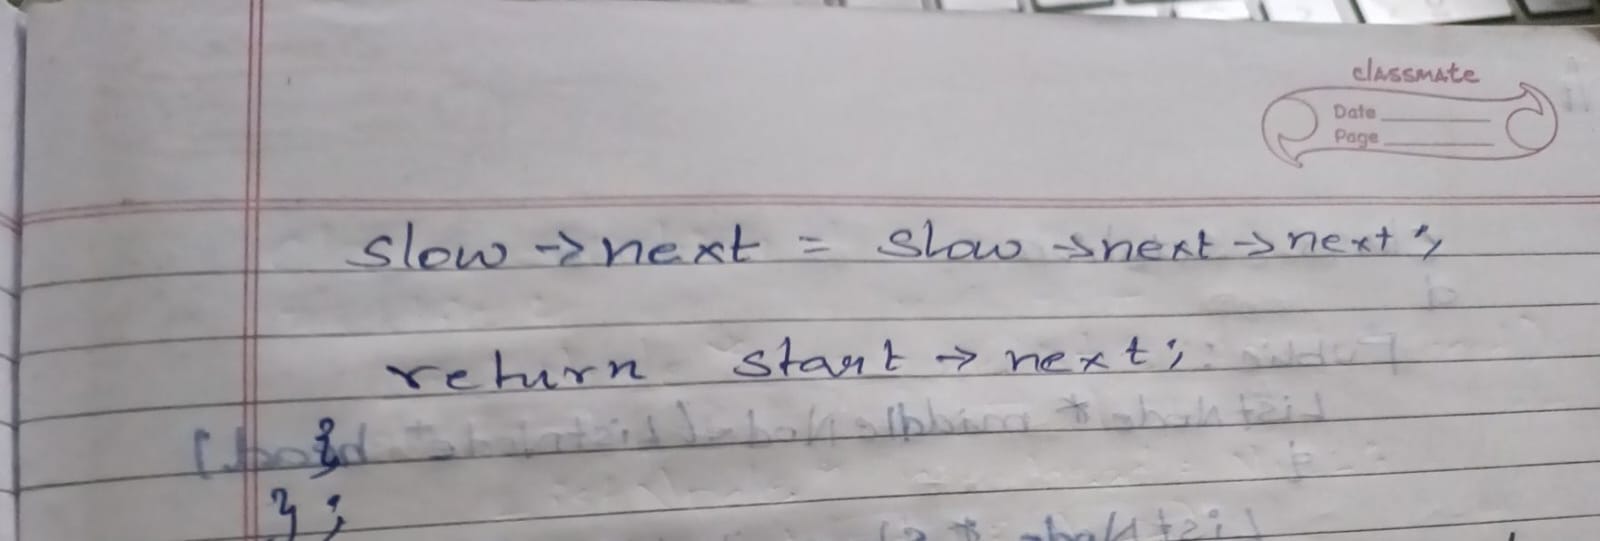 classmate
Date
Page
slow -> next = slow -> next -> next ;
return start -> next ;
}
} ;